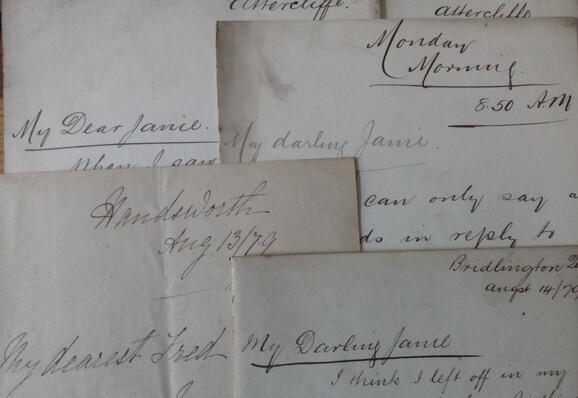 Attercliffe.
Attercliffe
My Dear Janie.
When I saw
Monday
Morning.
8.50 AM
My darling Janie.
can only say a
ds in reply to
Handsworth
Aug 13/79
My dearest Fred
Bridlington
augst 14/79
My Darling Janie
I think I left off in my